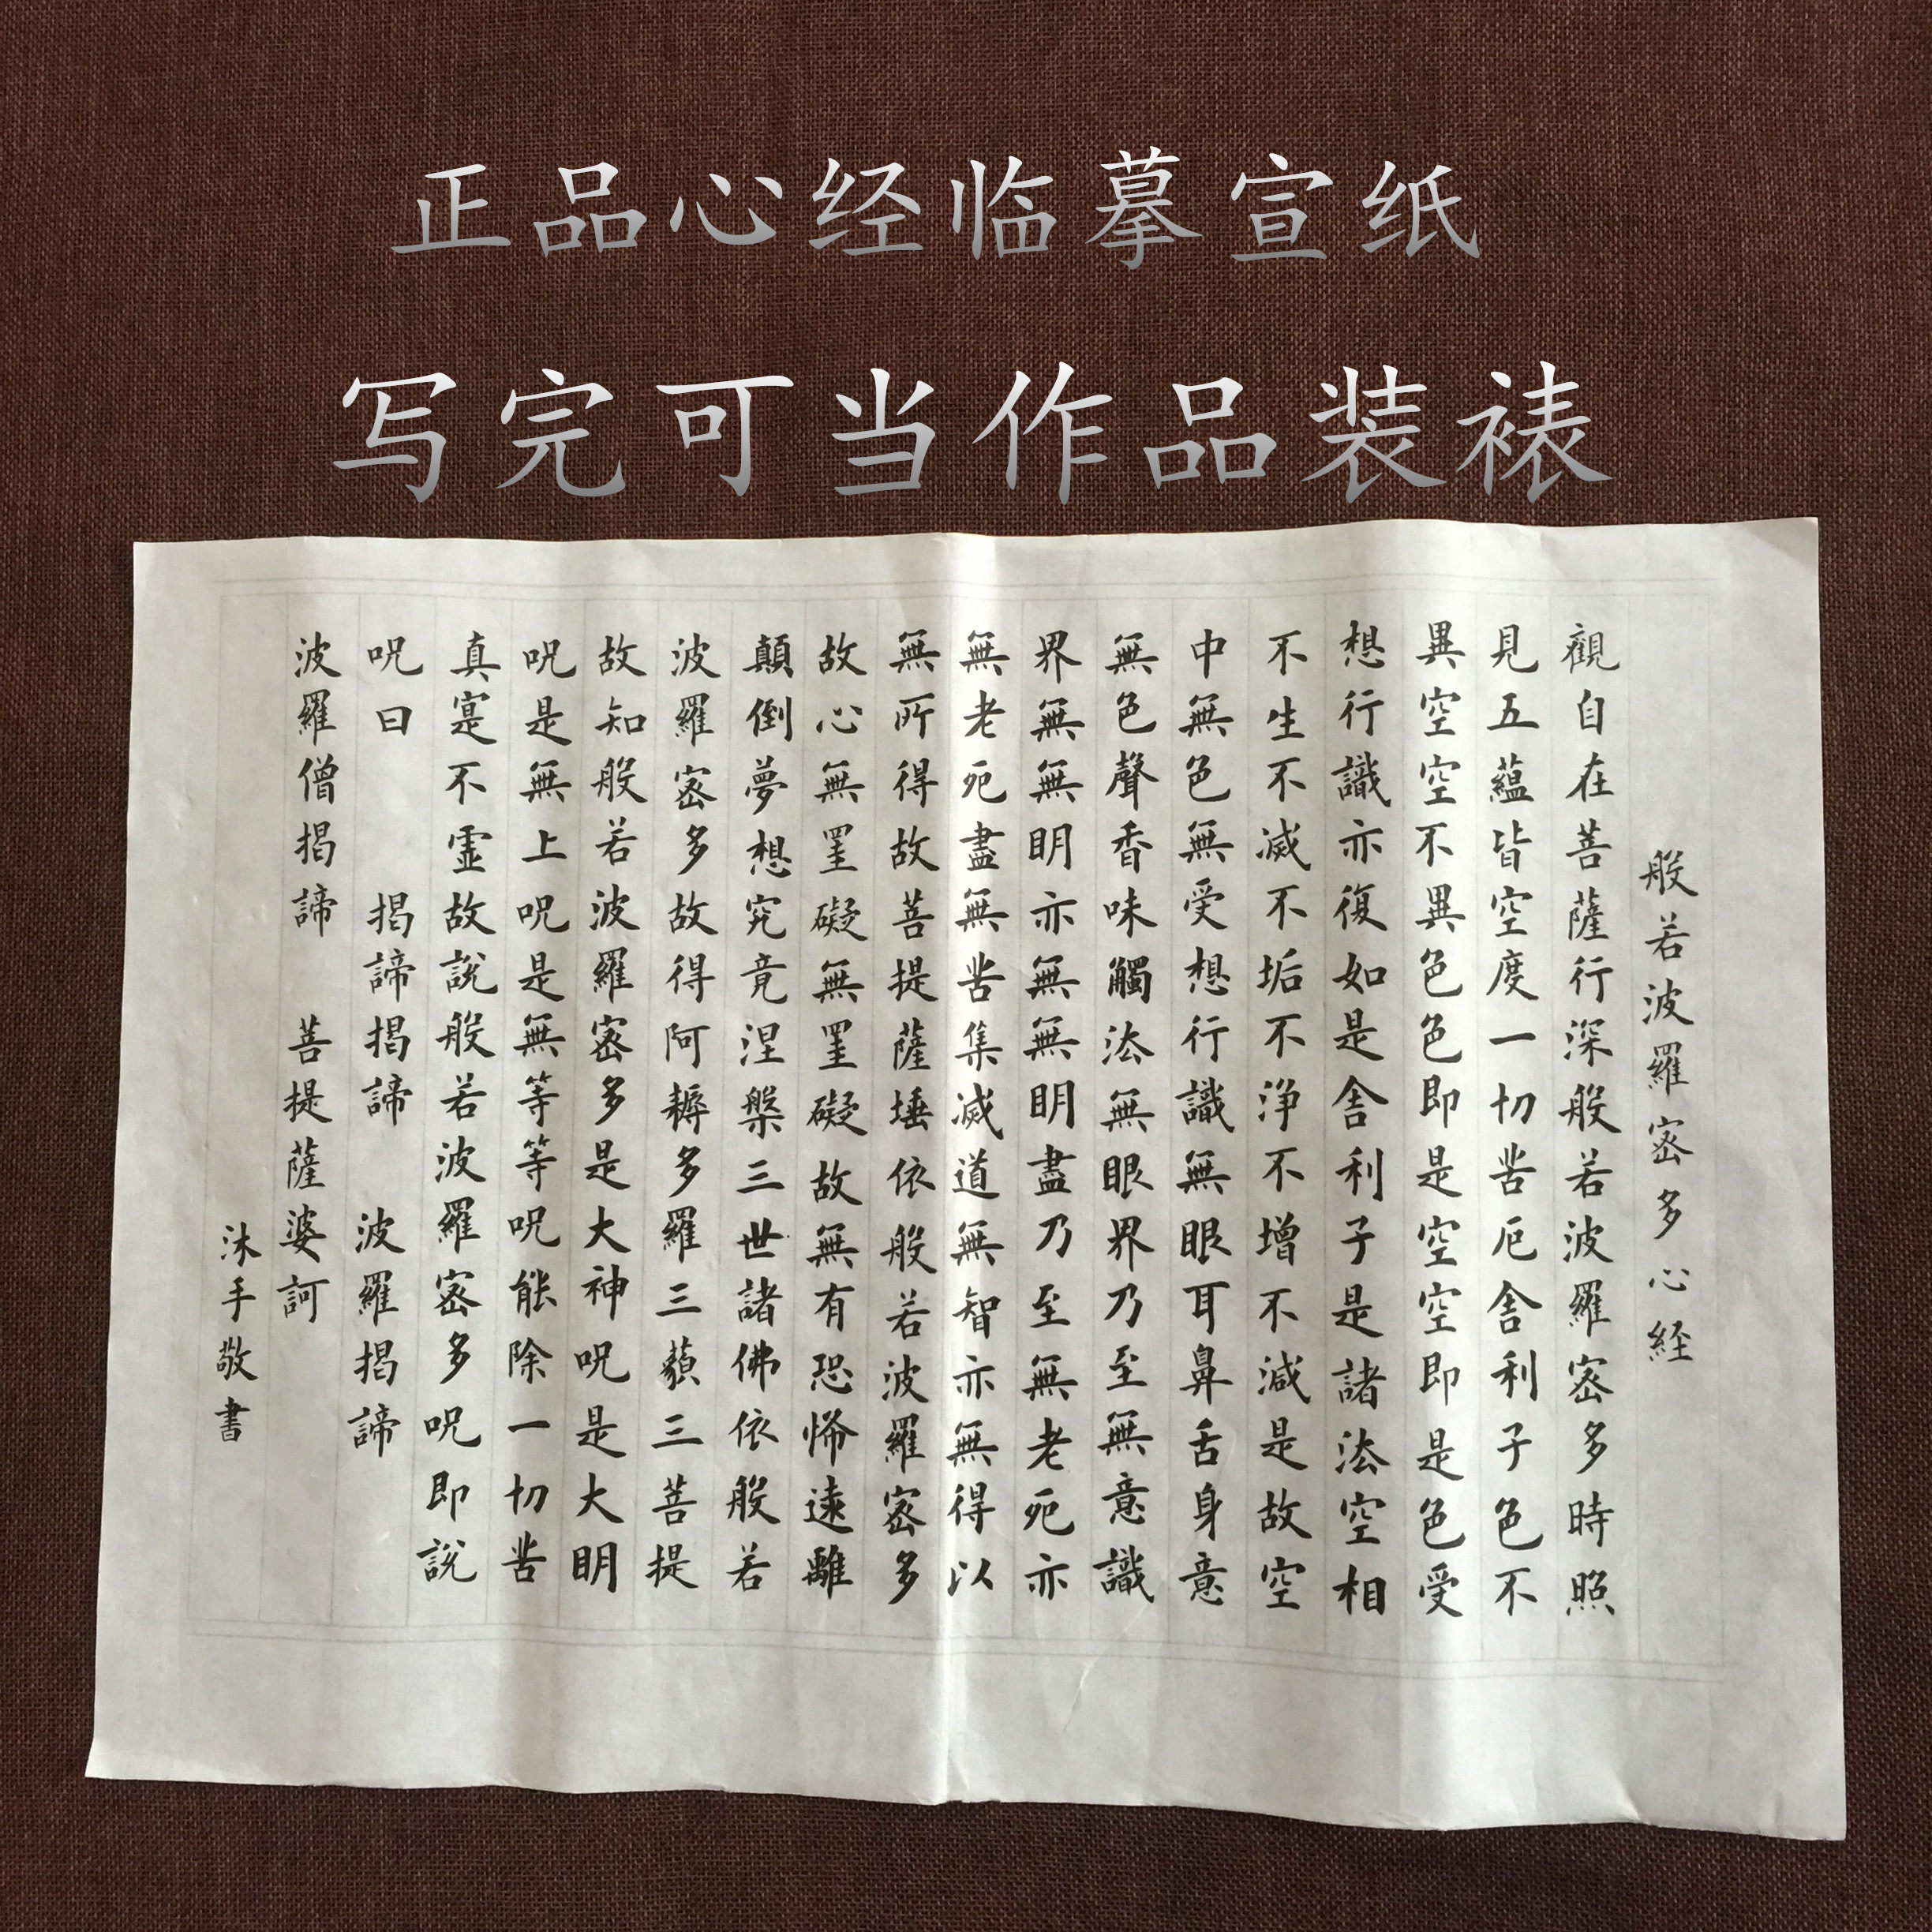 正品心经临摹宣纸
写完可当作品装裱
般若波羅密多心経
觀自在菩薩行深般若波羅密多時照
見五蘊皆空度一切苦厄舍利子色不
異空空不異色色即是空空即是色受
想行識亦復如是舍利子是諸法空相
不生不滅不垢不浄不增不減是故空
中無色無受想行識無眼耳鼻舌身意
無色聲香味觸法無眼界乃至無意識
界無無明亦無無明盡乃至無老死亦
無老死盡無苦集滅道無智亦無得以
無所得故菩提薩埵依般若波羅密多
故心無罣礙無罣礙故無有恐怖遠離
顛倒夢想究竟涅槃三世諸佛依般若
波羅密多故得阿耨多羅三藐三菩提
故知般若波羅密多是大神呪是大明
呪是無上呪是無等等呪能除一切苦
真寔不虛故說般若波羅密多呪即說
呪曰 揭諦揭諦 波羅揭諦
波羅僧揭諦 菩提薩婆訶
沐手敬書